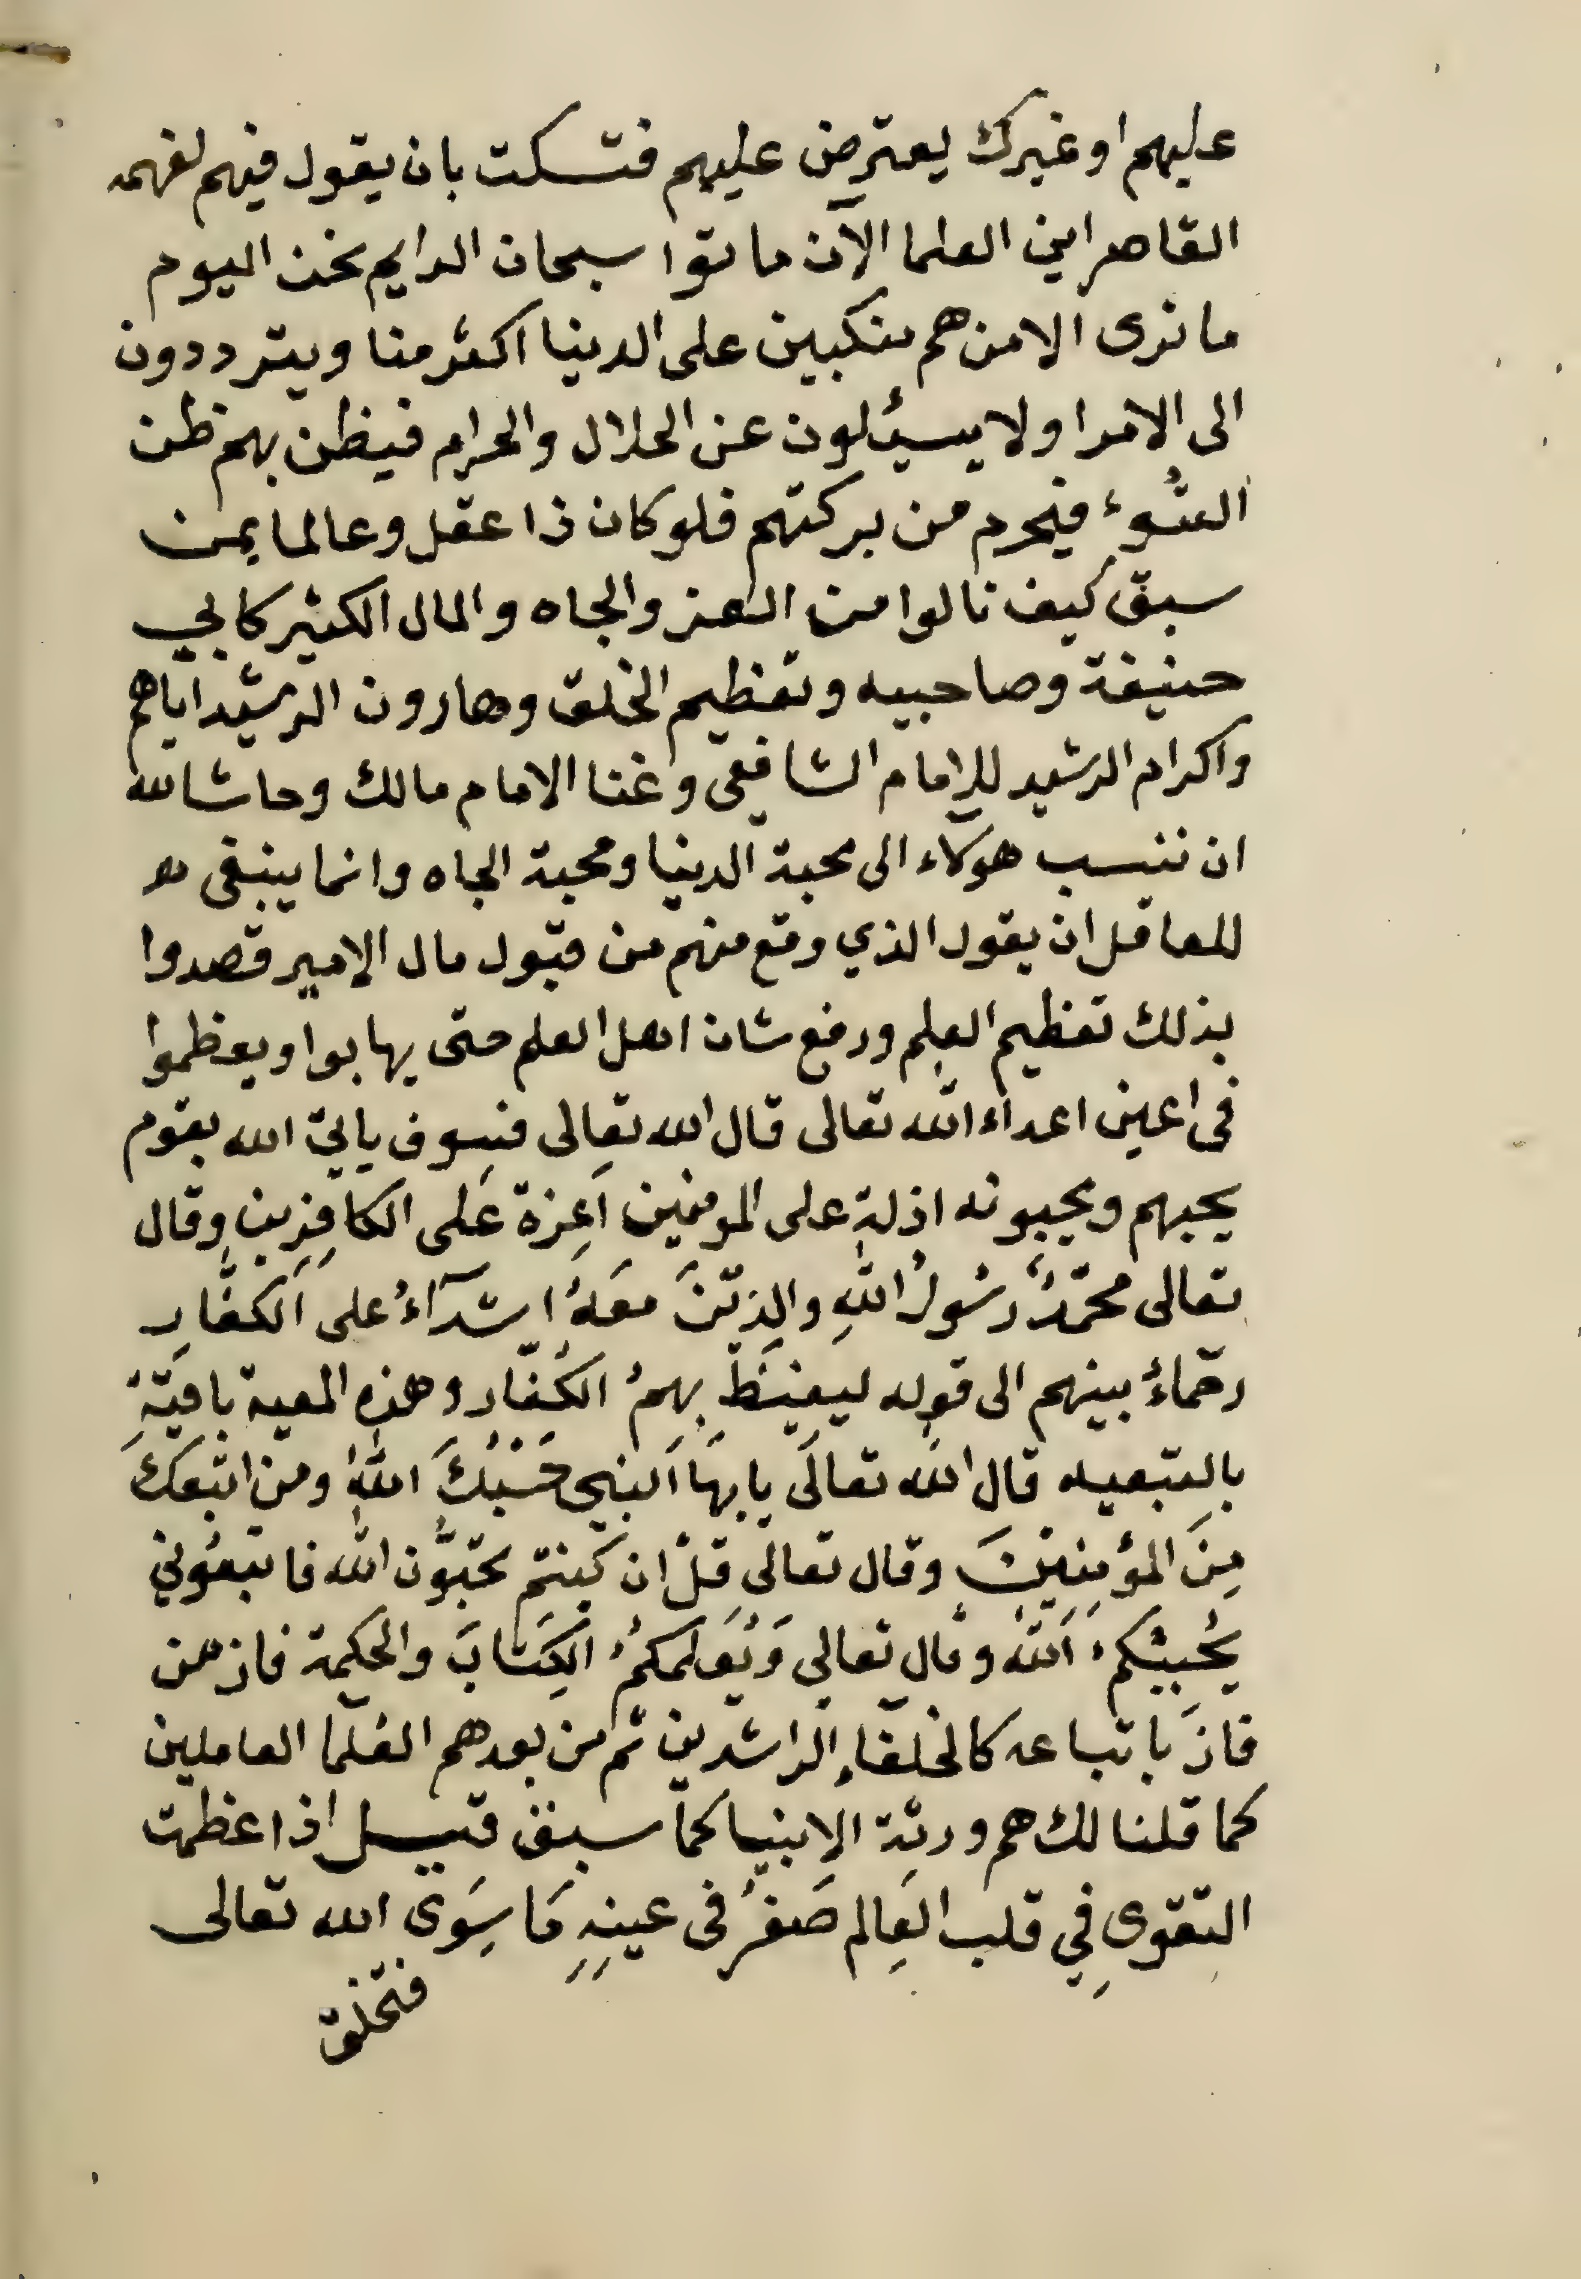 عليهم او غيرك يعترض عليهم فتسكت بان يقول فيهم لفهمه
القاصر اين العلما الآن ماتوا سبحان الدايم نحن اليوم
ما نرى الا من هم منكبين على الدنيا اكثر منا ويترددون
الى الامرا ولا يسئلون عن الحلال والحرام فيظن بهم ظن
السُّوء فيحرم من بركتهم فلو كان ذا عقل وعالما بمن
سبق كيف نالوا من العز والجاه والمال الكثير كابي
حنيفة وصاحبيه وتعظيم الخلق وهارون الرشيد اياهم
واكرام الرشيد للامام الشافعي وغنا الامام مالك وحاشا لله
ان ننسب هولاء الى محبة الدنيا ومحبة الجاه وانما ينبغى
للعاقل ان يقول الذي وقع منهم من قبول مال الامير قصدوا
بذلك تعظيم العلم ورفع شان اهل العلم حتى يهابوا ويعظموا
فى اعين اعداء الله تعالى قال الله تعالى فسوف ياتي الله بقوم
يحبهم ويحبونه اذلة على المومنين اَعِزة عَلى الكافِرِين وقال
تعالى محمّدٌ رسُولُ اللهِ والذِيْنَ معَهُ اشدّآءُ على الكفّارِ
رحَماءُ بينهم الى قوله ليغِيْظَ بِهِمُ الكُفّار وهذه المعية باقيَةٌ
بالتبعيه قال الله تعالَى يا يهَا النبي حَسْبُكَ اللهُ ومن اتبعكَ
مِنَ المؤمِنِيْنَ وقال تعالى قلْ ان كنتم تحبُّون الله فاتبعُوني
يُحْبِبْكمُ اللهُ وقال تعالى وَيُعَلمكمُ الكِتَابَ والحكمة فاز من
فازَ باتباعه كالخلفاءِ الراشدين ثم من بعدهم العُلما العاملين
كما قلنا لك هم ورثة الانبيا كما سبق قيل اذا عظمت
التقوى فِي قلب العَالم صَغُرَ فى عينِهِ مَا سِوَى الله تعالى
فتخلق